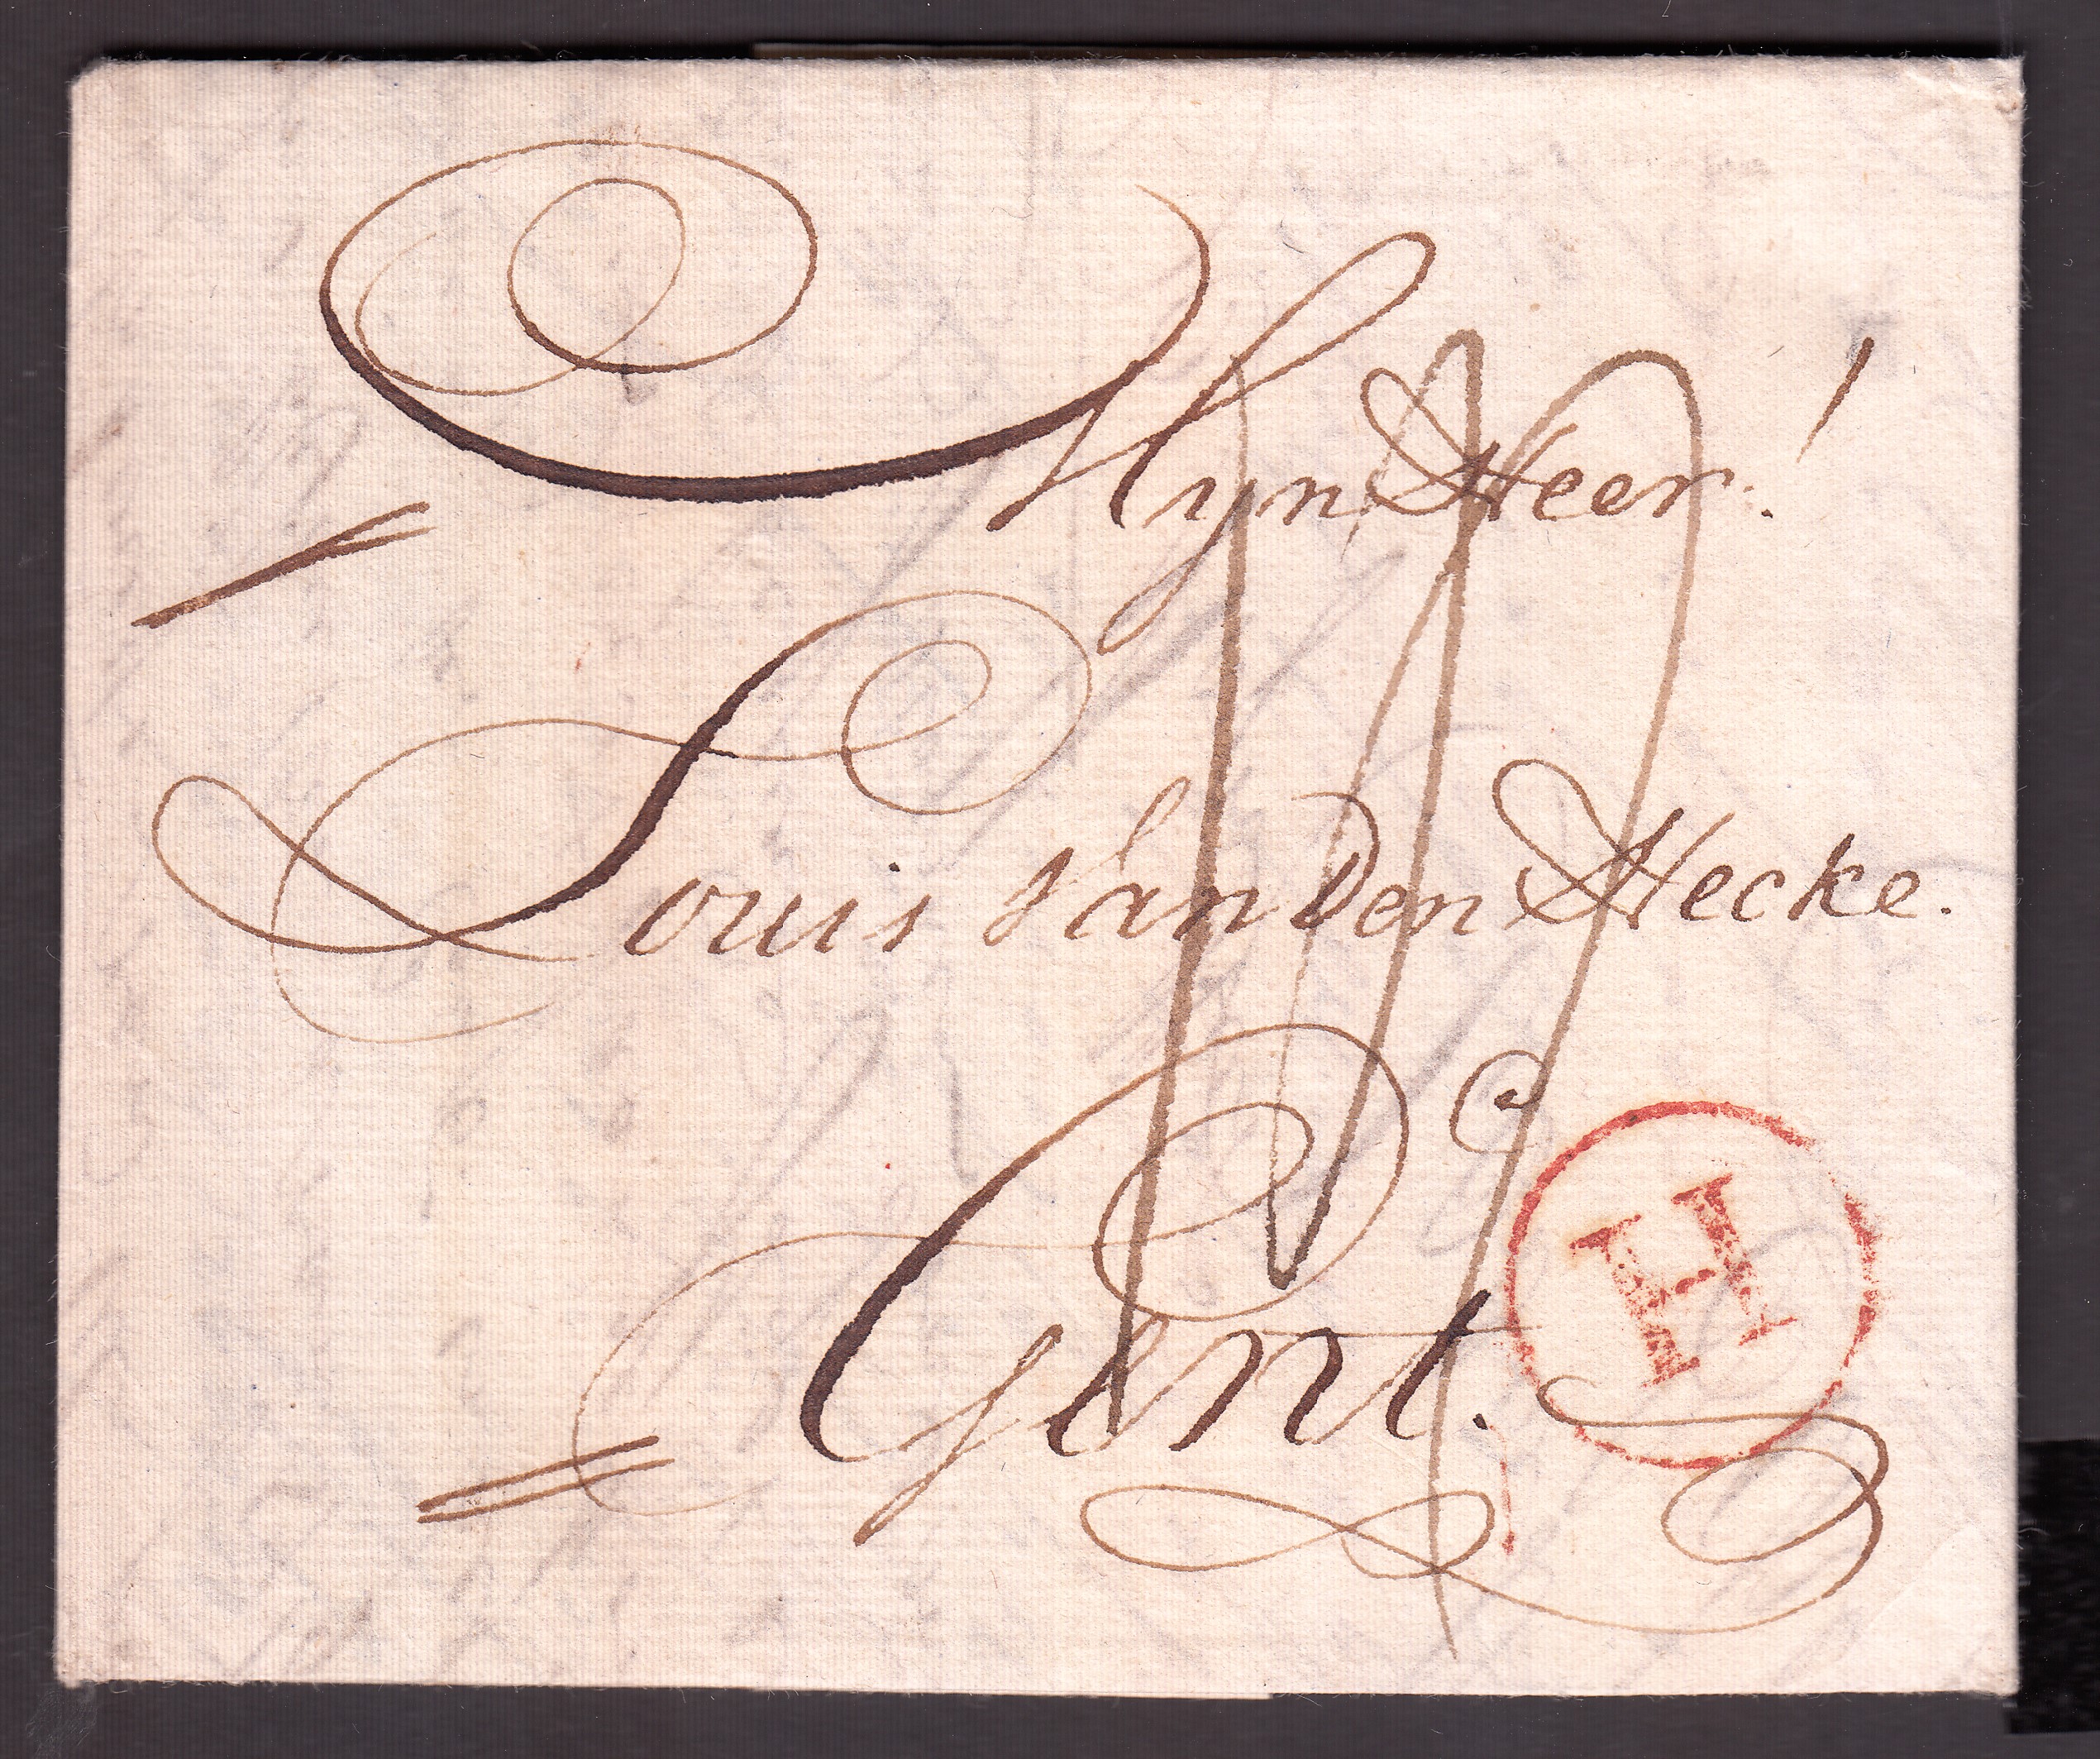 Myn Heer!
Louis Van Den Hecke.
Gent.
H